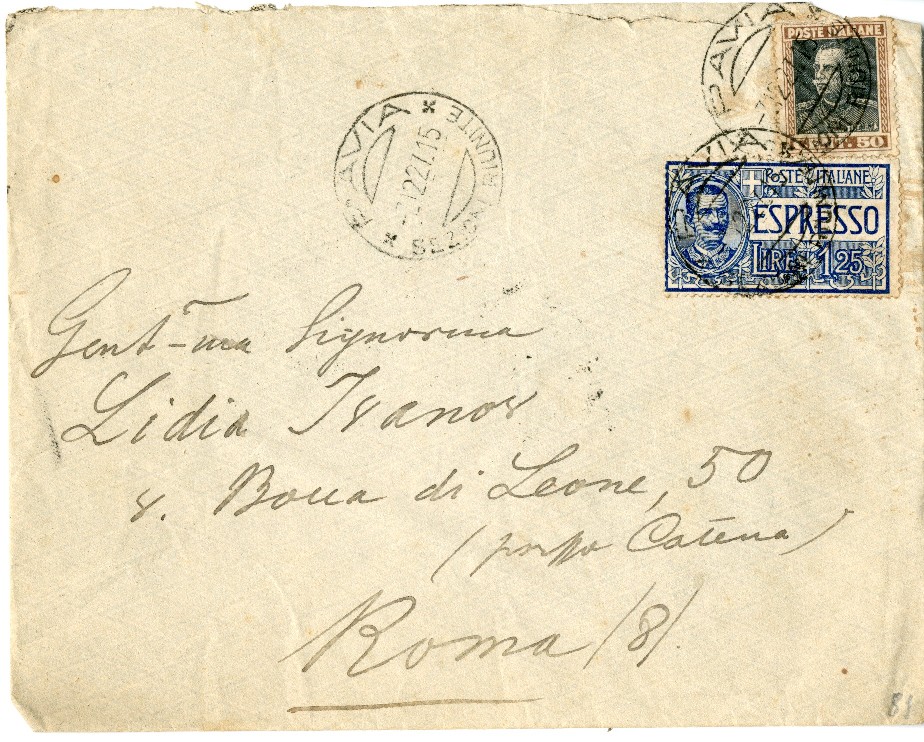 POSTE ITALIANE
50
PAVIA
POSTE ITALIANE
ESPRESSO
LIRE 1,25
PAVIA
-12227.15
SEZIONI RIUNITE
Gent-ma Signorina
Lidia Ivanov
v. Bocca di Leone, 50
(presso Catena)
Roma (8)
81